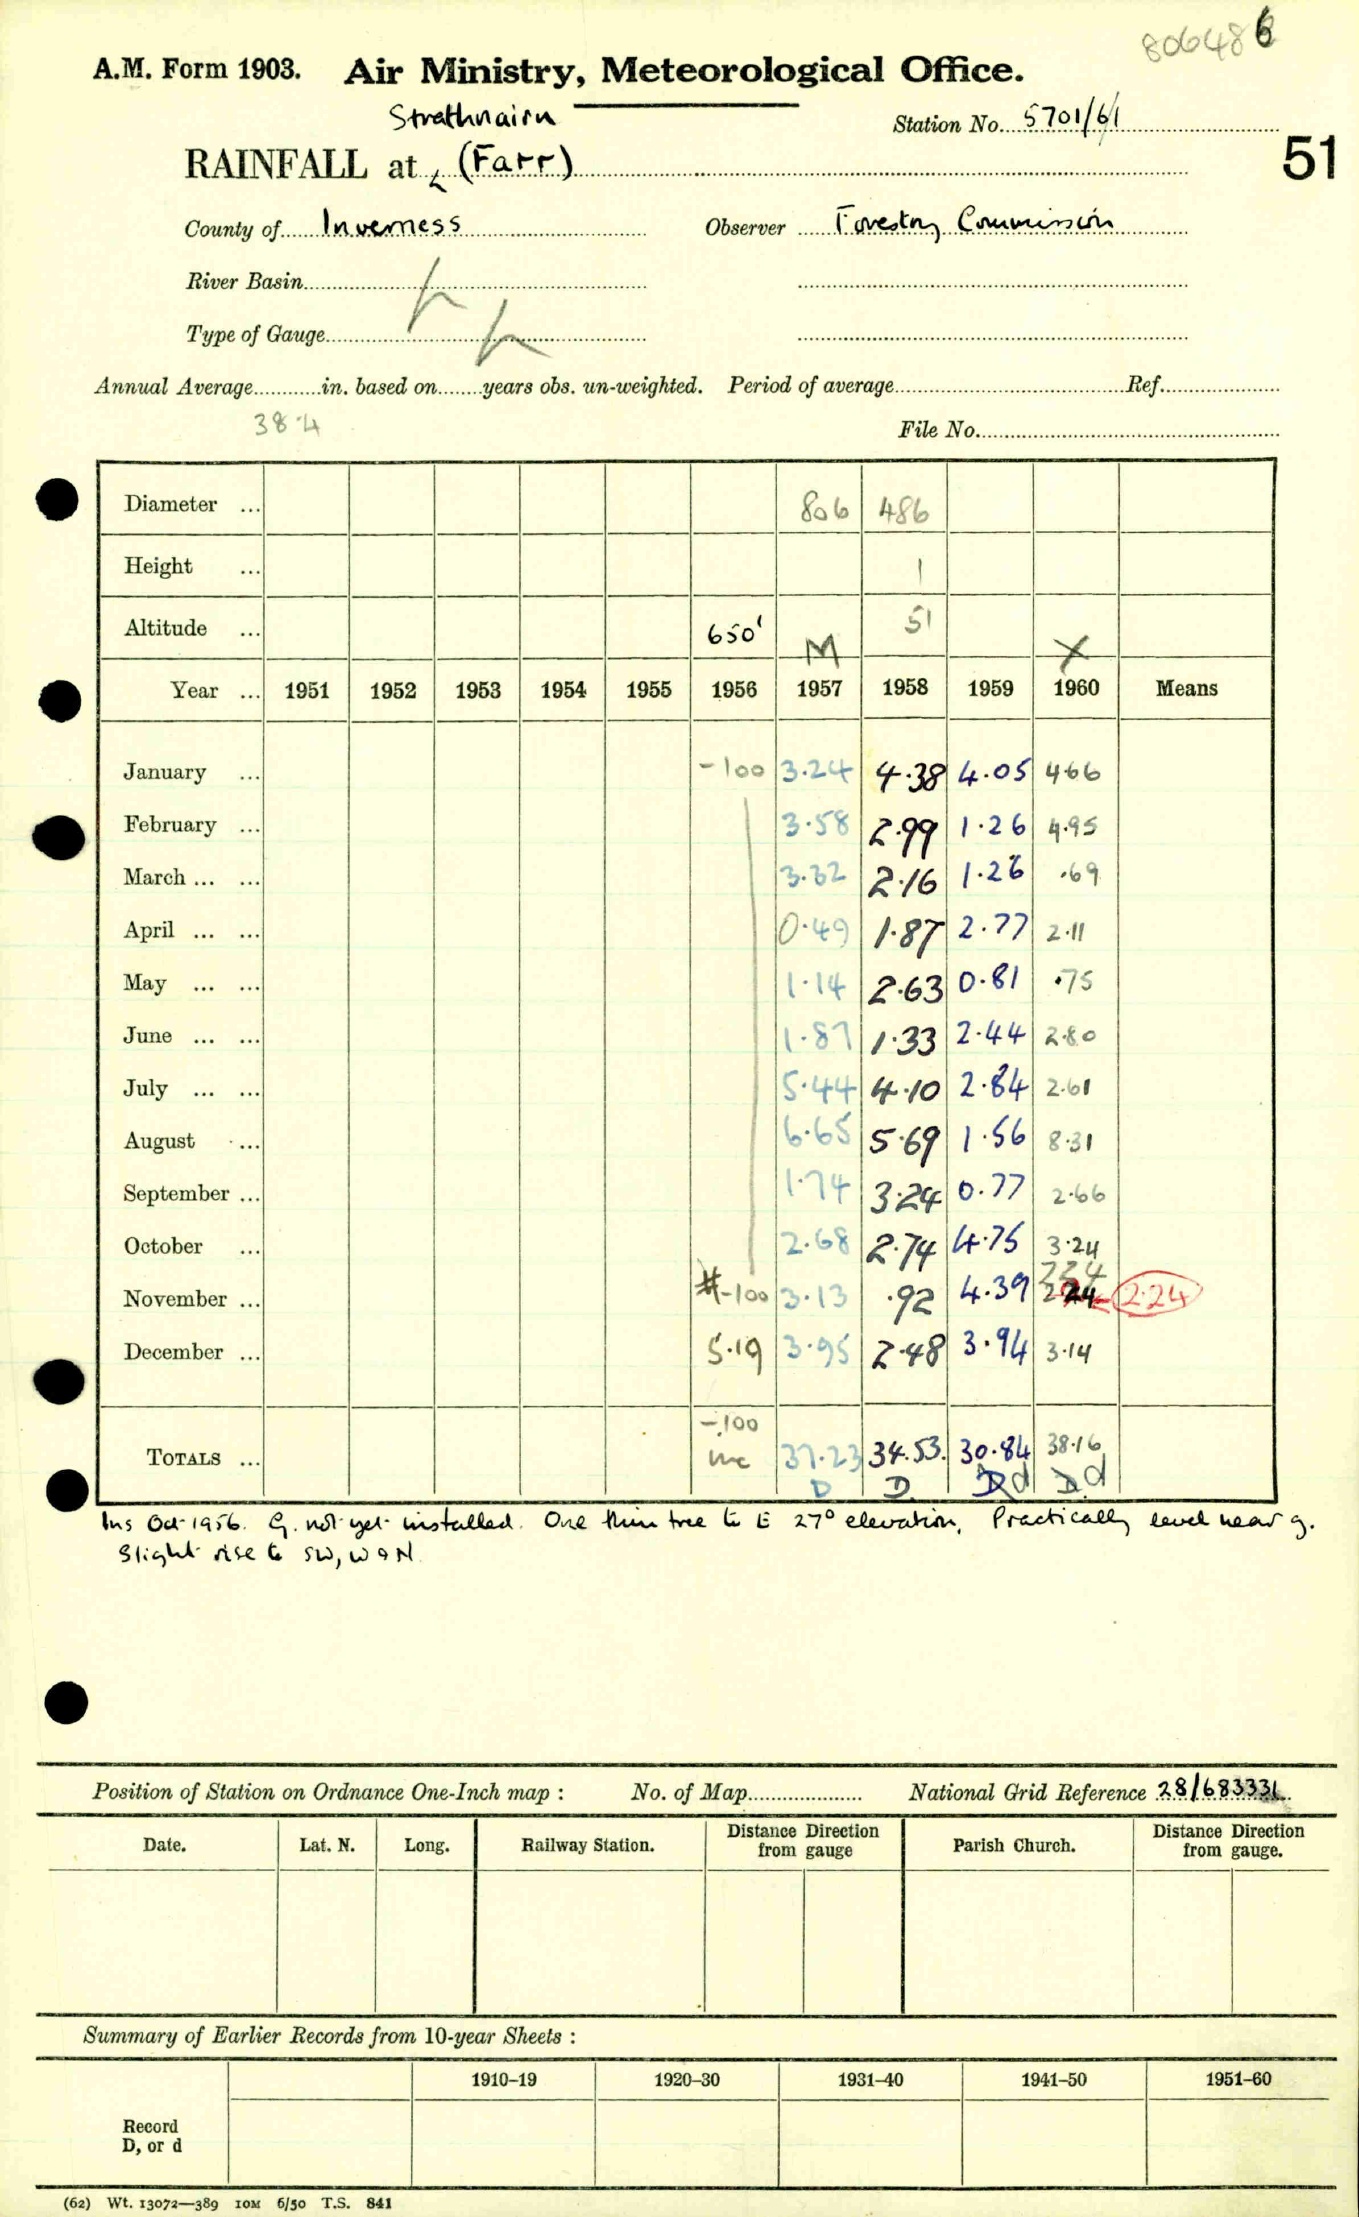 806486
A.M. Form 1903. Air Ministry, Meteorological Office.
Strathnairn
Station No. 5701/6/1
RAINFALL at (Farr)
51
County of Inverness Observer Forestry Commission
River Basin
Type of Gauge
Annual Average in. based on years obs. un-weighted. Period of average Ref.
38.4
File No.
Diameter ... 806 486
Height ... 1
Altitude ... 650' M 51 X
Year ... 1951 1952 1953 1954 1955 1956 1957 1958 1959 1960 Means
January ... -100 3.24 4.38 4.05 4.66
February ... 3.58 2.99 1.26 4.95
March ... ... 3.32 2.16 1.26 .69
April ... ... 0.49 1.87 2.77 2.11
May ... ... 1.14 2.63 0.81 .75
June ... ... 1.87 1.33 2.44 2.80
July ... ... 5.44 4.10 2.84 2.61
August ... 6.65 5.69 1.56 8.31
September ... 1.74 3.24 0.77 2.66
October ... 2.68 2.74 4.75 3.24
224
November ... #-100 3.13 .92 4.39 2.24 2.24
December ... 5.19 3.95 2.48 3.94 3.14
-100
TOTALS ... inc 37.23 34.53. 30.84 38.16
D D D d D d
Ins Oct 1956. G. not yet installed. One thin tree to E 27° elevation, Practically level near g.
Slight rise to SW, W & N.
Position of Station on Ordnance One-Inch map : No. of Map National Grid Reference 28/683331
Date. Lat. N. Long. Railway Station. Distance from Direction gauge Parish Church. Distance from Direction gauge.
Summary of Earlier Records from 10-year Sheets :
1910–19 1920–30 1931–40 1941–50 1951–60
Record
D, or d
(62) Wt. 13072—389 10M 6/50 T.S. 841